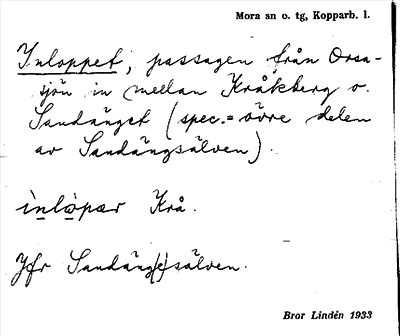 Mora sn o. tg, Kopparb. l.
Inloppet, passagen från Orsa-
sjön in mellan Kråkberg o.
Sandänget (spec. = övre delen
av Sandängsälven).
ìnlòpær Krå.
Jfr Sandäng(e)sälven.
Bror Lindén 1933